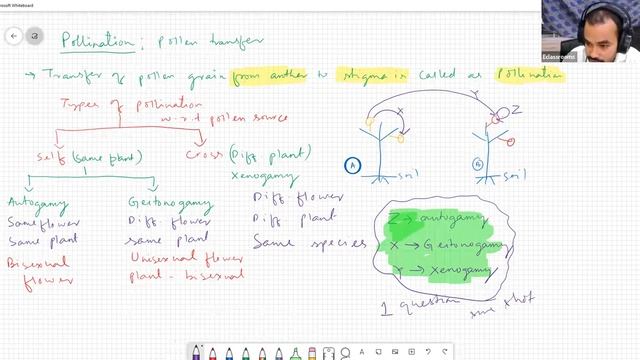 Microsoft Whiteboard
Eclassrooms
Pollination; pollen transfer
→ Transfer of pollen grain from anther to stigma is called as Pollination
Types of pollination
w.r.t pollen source
Self (same plant)
Cross (Diff plant)
Xenogamy
Autogamy
Same flower
Same plant
Bisexual
flower
Geitonogamy
Diff. flower
same plant
Unisexual flower
plant - bisexual
Diff. flower
Diff. plant
Same species
X
Y
Z
A
soil
B
soil
Z → autogamy
X → Geitonogamy
Y → Xenogamy
1 question
shot